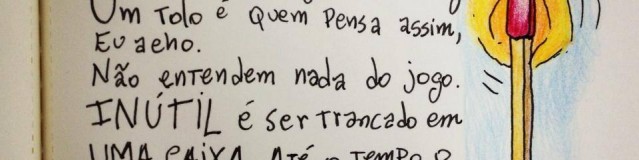 Um Tolo é quem pensa assim,
Eu acho.
Não entendem nada do jogo.
INÚTIL é ser trancado em
UMA CAIXA ATÉ o TEMPO O